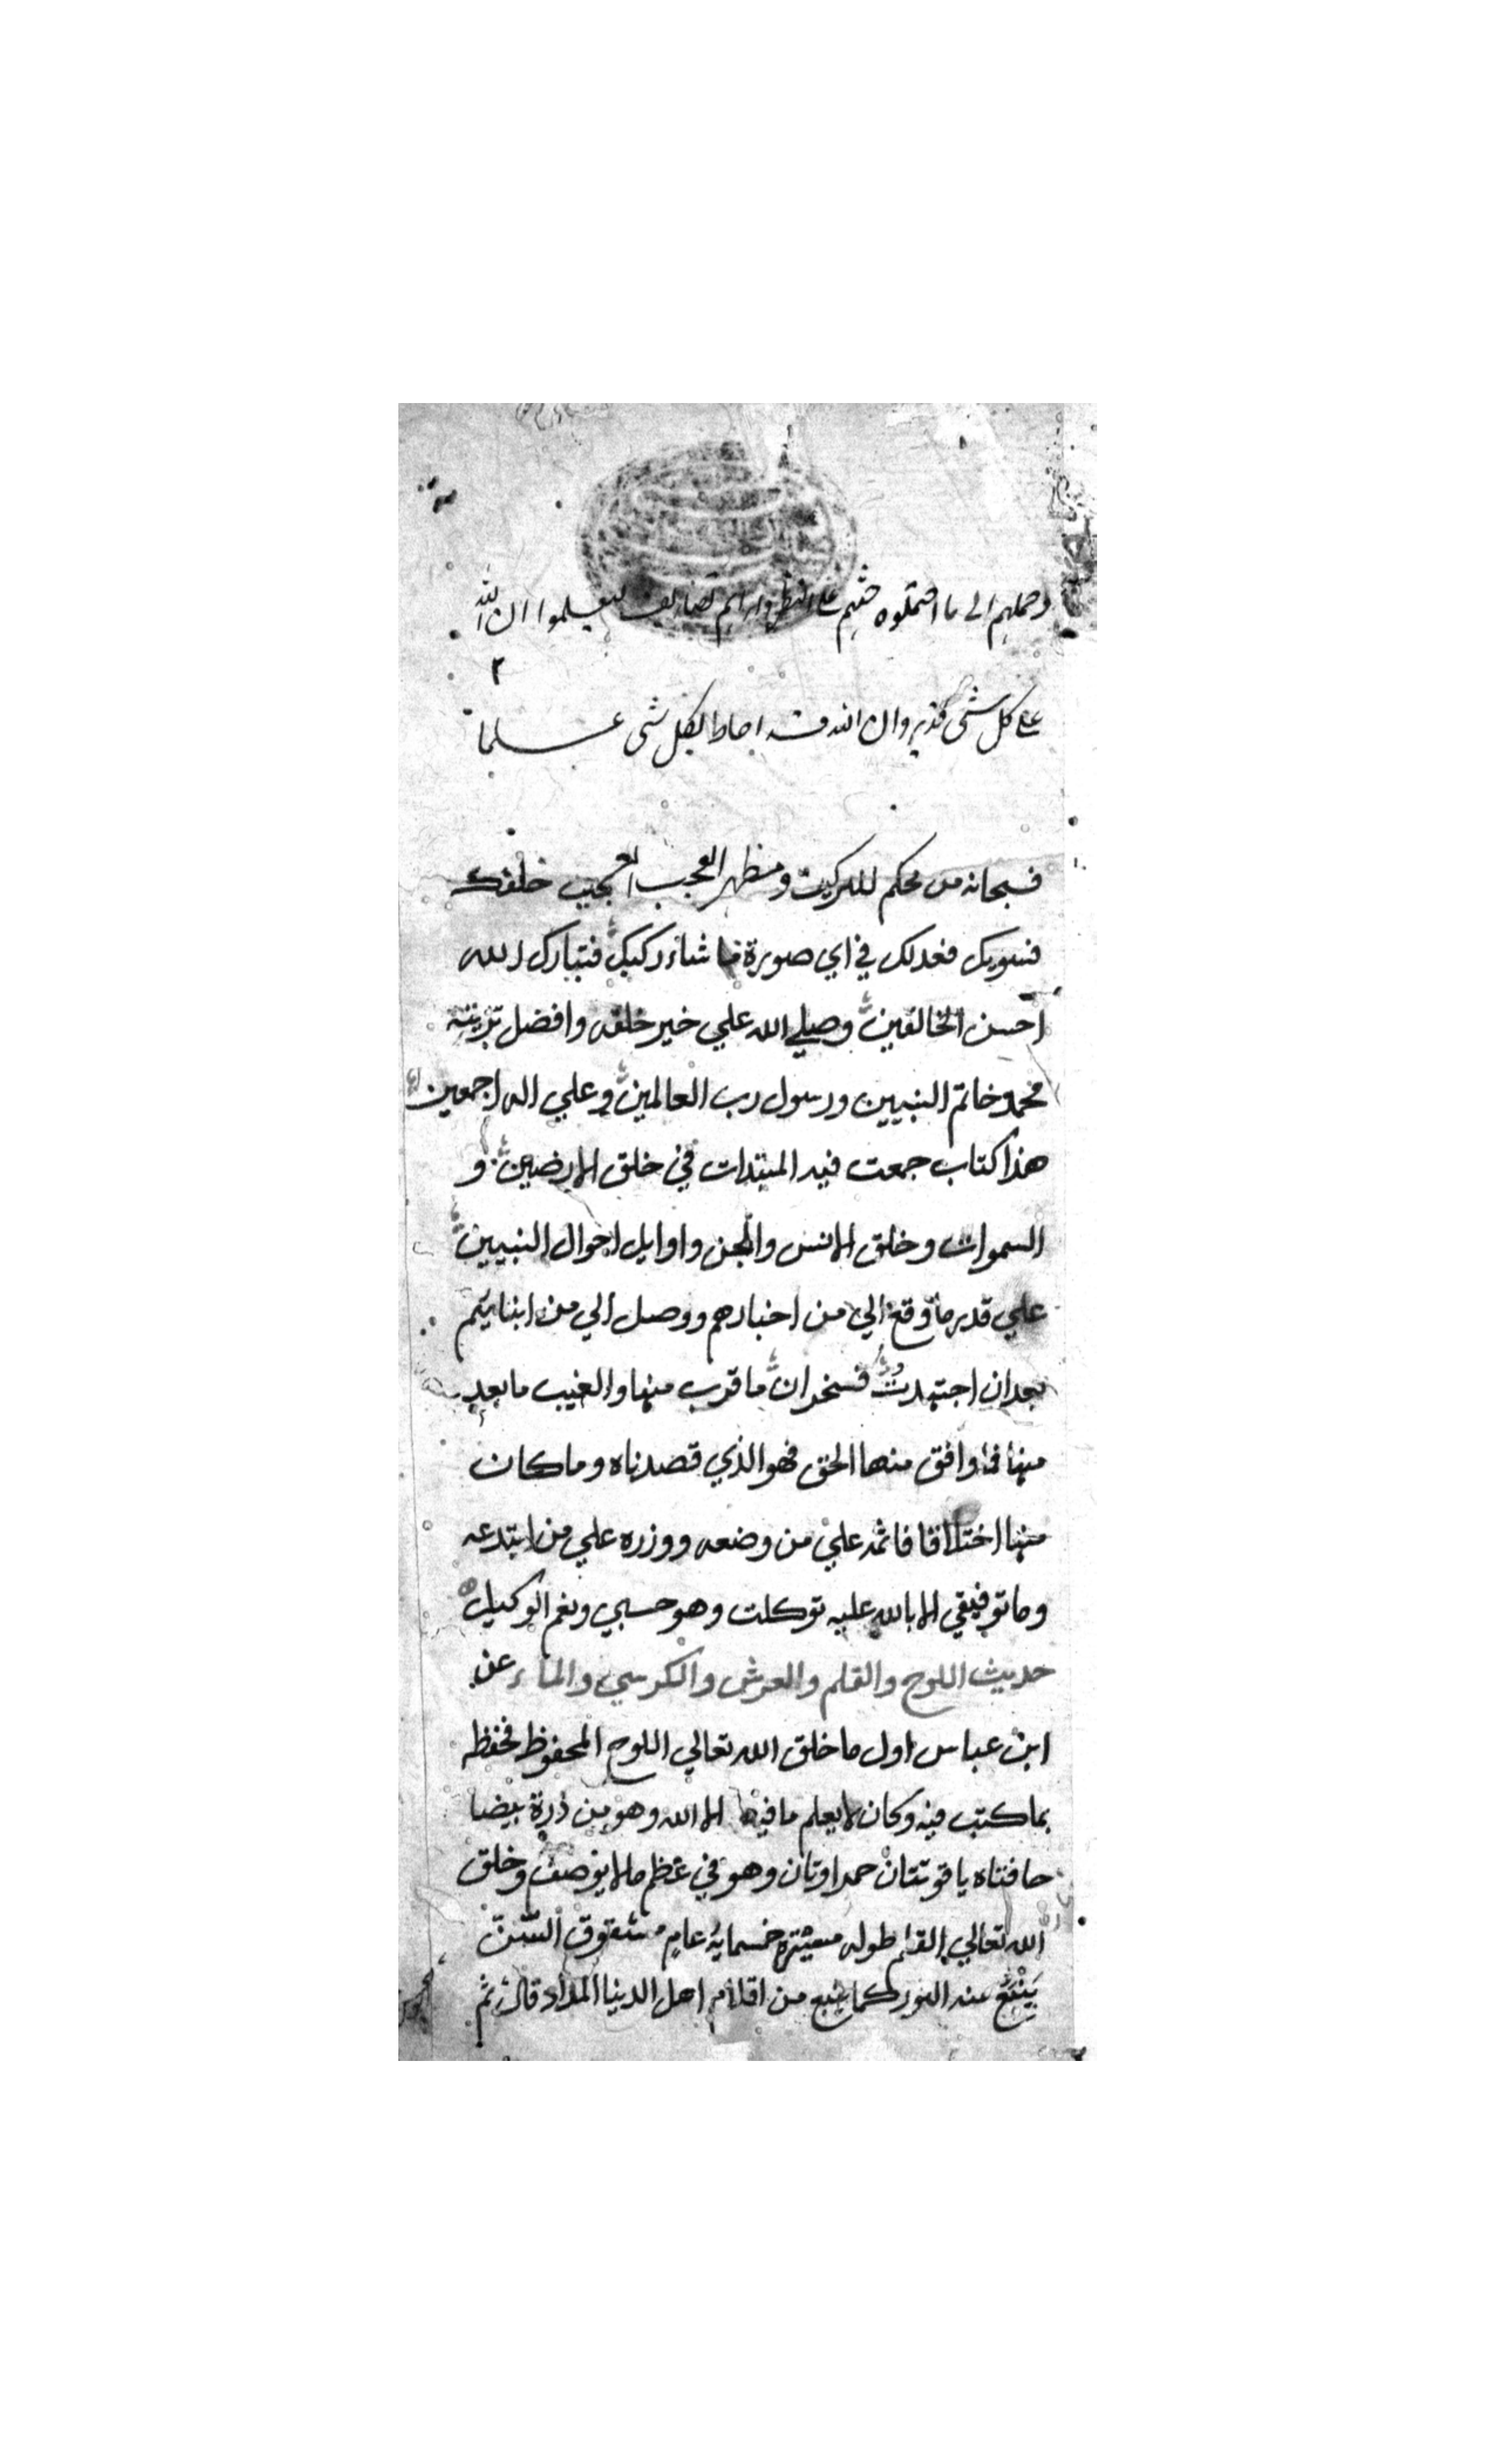 وحملهم الى ما احتملوه حثهم على النظر واراهم تصاريف ليعلموا ان الله
٢
على كل شئ قدير وان الله قد احاط بكل شئ علما
فسبحانه من محكم للتركيب ومظهر العجب العجيب خلقك
فسويك فعدلك في اي صورة ما شاء ركبك فتبارك الله
احسن الخالقين وصلي الله علي خير خلقه وافضل بريته
محمد خاتم النبيين ورسول رب العالمين وعلي اله اجمعين
هذا كتاب جمعت فيه المبتدات في خلق الارضين و
السموات وخلق الانس والجن واوايل احوال النبيين
علي قدر ما وقع الي من اخبارهم ووصل الي من ابنايهم
بعد ان اجتهدت ما قرب منها والغيب ما بعد
منها فما وافق منها الحق فهو الذي قصدناه وما كان
منها اختلاقا فاثمه علي من وضعه ووزره علي من ابتدعه
وما توفيقي الا بالله عليه توكلت وهو حسبي ونعم الوكيل
حديث اللوح والقلم والعرش والكرسي والماء عن
ابن عباس اول ما خلق الله تعالي اللوح المحفوظ فحفظه
بما كتب فيه وكان لا يعلم ما فيه الا الله وهو من درة بيضا
حافتاه ياقوتتان حمراوتان وهو في عظم ما لا يوصف وخلق
الله تعالي القلم طوله مسيرة خمسماية عام مشقوق السن
ينبع منه النور كما ينبع من اقلام اهل الدنيا المداد قال ثم